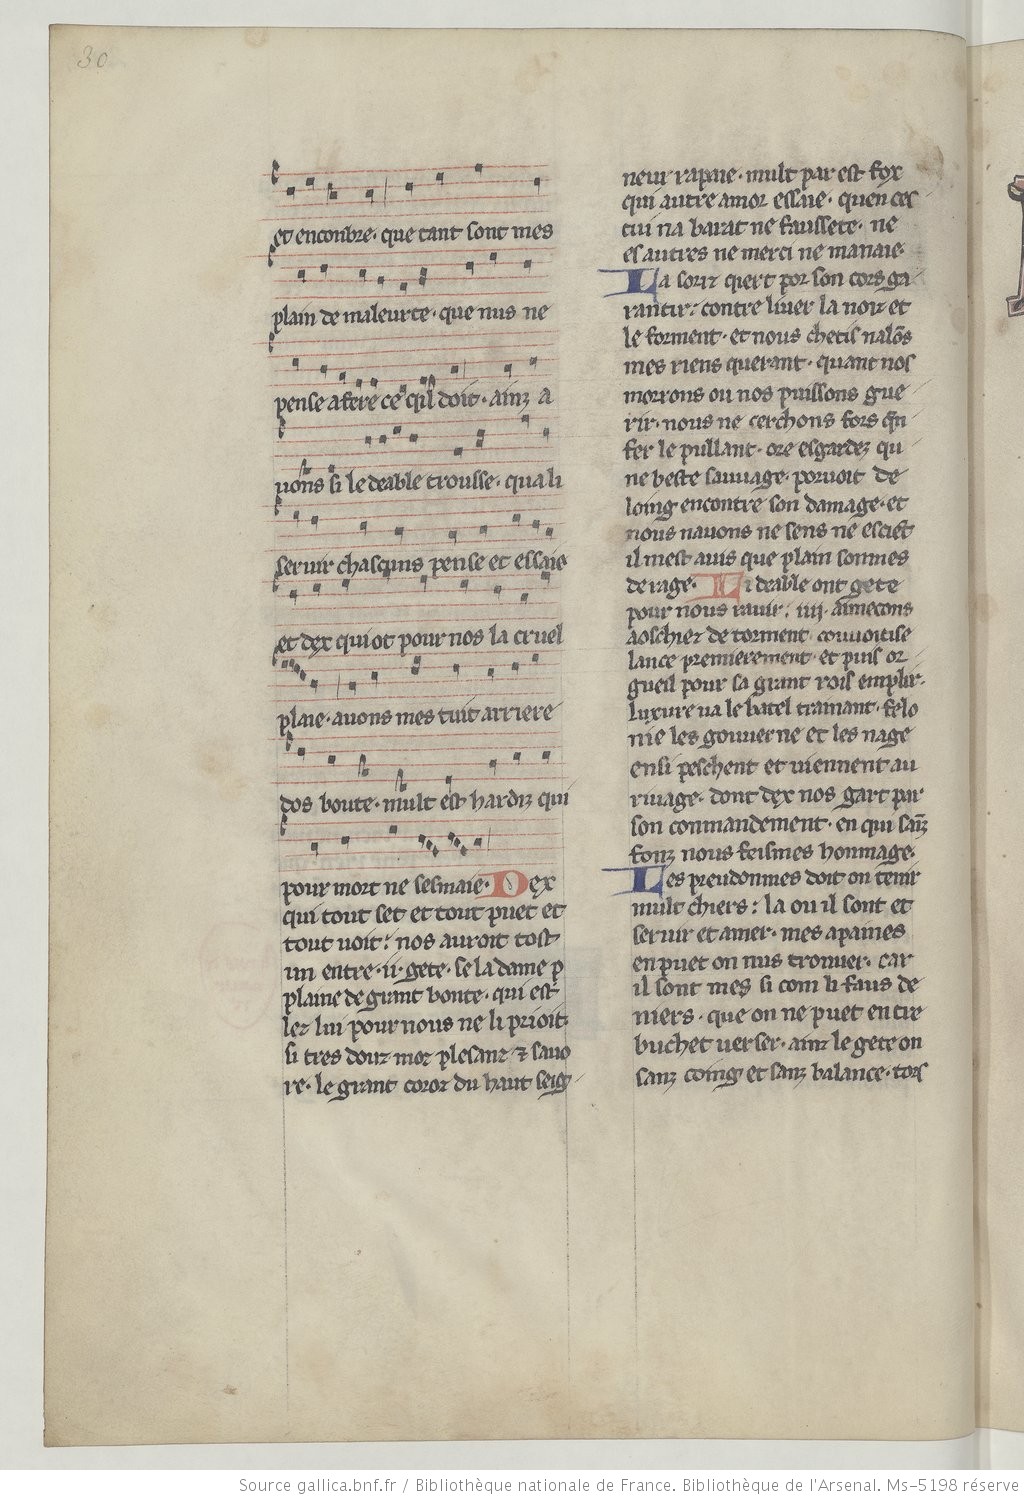 30
et enconbre· que tant sont mes
plain de maleurte· que nus ne
pense a fere ce qil doit· ainz a
uons si le deable trousse· qua li
seruir chascuns pense et essaie
et dex qui ot pour nos la cruel
plaie· auons mes tuit arriere
dos boute· mult est hardiz qui
pour mort ne sesmaie· Dex
qui tout set et tout puet et
tout uoit: nos auroit tost
un entre·ij· gete· se la dame p
plaine de grant bonte· qui est
lez lui pour nous ne li prioit·
si tres douz mot plesant ⁊ sauo
re· le grant coroz du haut seig
neur rapaie· mult par est fox
qui autre amor essaie· quen ces
tui na barat ne faussete· ne
es autres ne merci ne manaie·
La soriz qiert por son cors ga
rantir: contre liuer la noiz et
le forment· et nous chetis nalōs
mes riens querant· quant nos
morrons ou nos puissons gue
rir· nous ne cerchons fors qen
fer le pullant· ore esgardez qu
ne beste sauuage· poruoit de
loing encontre son damage· et
nous nauons ne sens ne esciet
il mest auis que plain sonmes
de rage· Li deable ont gete
pour nous rauir: iiij· aimecons
aoschiez de torment· couuoitise
lance premierement· et puis or
gueil pour sa grant rois emplir·
luxure ua le batel trainant· felo
nie les gouuerne et les nage
ensi peschent et uiennent au
riuage· dont dex nos gart par
son conmandement· en qui sainz
fonz nous feismes honmage·
Les preudonmes doit on tenir
mult chiers: la ou il sont et
seruir et amer· mes apaines
en puet on nus trouuer· car
il sont mes si com li faus de
niers· que on ne puet en tre
buchet uerser· ainz le gete on
sanz coing et sanz balance· tors
Source gallica.bnf.fr / Bibliothèque nationale de France. Bibliothèque de l'Arsenal. Ms-5198 réserve